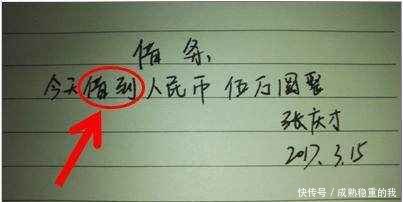 借条,
今天借到人民币伍万圆整
张庆才
2017.3.15
快传号/成熟稳重的我